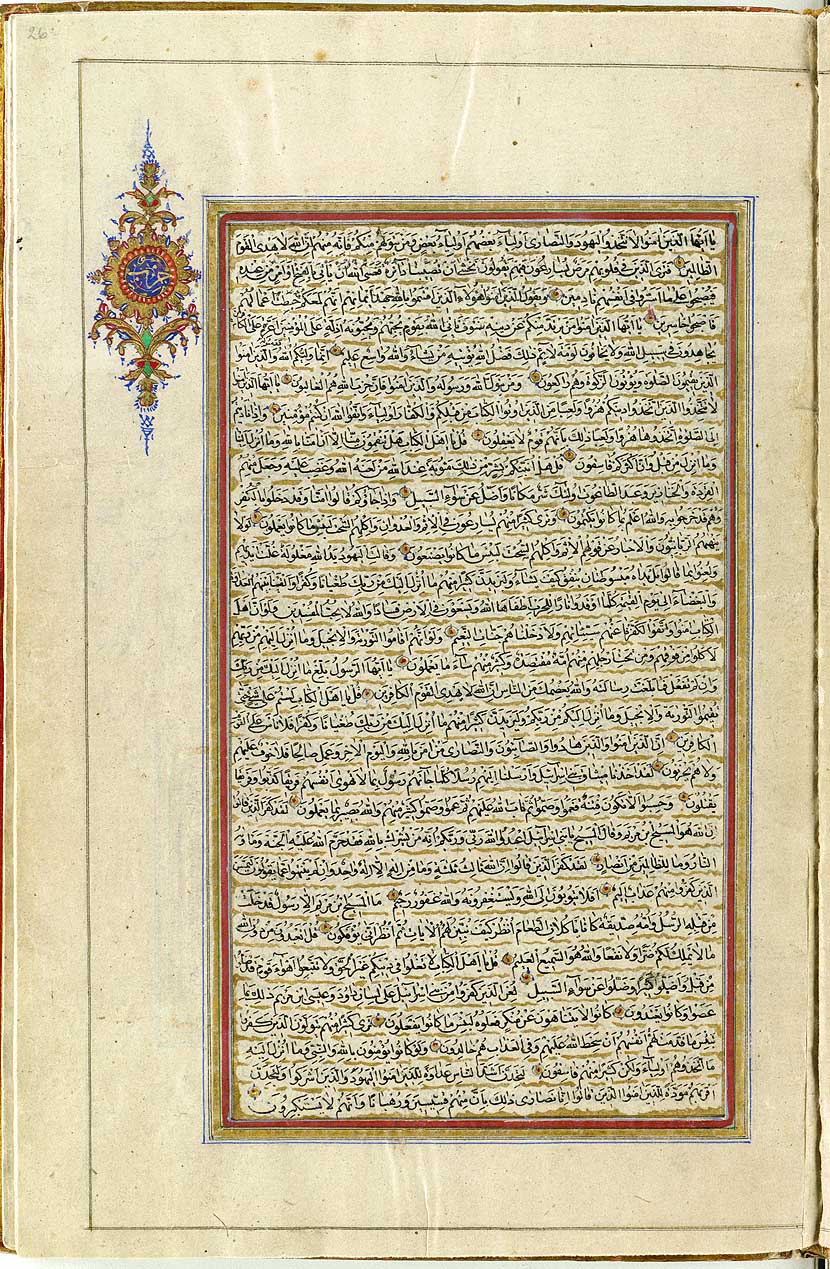 يا ايها الذين امنوا لا تتخذوا اليهود والنصارى اولياء بعضهم اولياء بعض ومن يتولهم منكم فانه منهم ان الله لا يهدي القوم
الظالمين فترى الذين في قلوبهم مرض يسارعون فيهم يقولون نخشى ان تصيبنا دائرة فعسى الله ان ياتي بالفتح او امر من عنده
فيصبحوا على ما اسروا في انفسهم نادمين ويقول الذين امنوا اهؤلاء الذين اقسموا بالله جهد ايمانهم انهم لمعكم حبطت اعمالهم
فاصبحوا خاسرين يا ايها الذين امنوا من يرتد منكم عن دينه فسوف ياتي الله بقوم يحبهم ويحبونه اذلة على المؤمنين اعزة على الكافرين
يجاهدون في سبيل الله ولا يخافون لومة لائم ذلك فضل الله يؤتيه من يشاء والله واسع عليم انما وليكم الله ورسوله والذين امنوا
الذين يقيمون الصلوة ويؤتون الزكوة وهم راكعون ومن يتول الله ورسوله والذين امنوا فان حزب الله هم الغالبون يا ايها الذين امنوا
لا تتخذوا الذين اتخذوا دينكم هزوا ولعبا من الذين اوتوا الكتاب من قبلكم والكفار اولياء واتقوا الله ان كنتم مؤمنين واذا ناديتم
الى الصلوة اتخذوها هزوا ولعبا ذلك بانهم قوم لا يعقلون قل يا اهل الكتاب هل تنقمون منا الا ان امنا بالله وما انزل الينا
وما انزل من قبل وان اكثركم فاسقون قل هل انبئكم بشر من ذلك مثوبة عند الله من لعنه الله وغضب عليه وجعل منهم
القردة والخنازير وعبد الطاغوت اولئك شر مكانا واضل عن سواء السبيل واذا جاؤكم قالوا امنا وقد دخلوا بالكفر
وهم قد خرجوا به والله اعلم بما كانوا يكتمون وترى كثيرا منهم يسارعون في الاثم والعدوان واكلهم السحت لبئس ما كانوا يعملون لولا
ينهيهم الربانيون والاحبار عن قولهم الاثم واكلهم السحت لبئس ما كانوا يصنعون وقالت اليهود يد الله مغلولة غلت ايديهم
ولعنوا بما قالوا بل يداه مبسوطتان ينفق كيف يشاء وليزيدن كثيرا منهم ما انزل اليك من ربك طغيانا وكفرا والقينا بينهم العداوة
والبغضاء الى يوم القيمة كلما اوقدوا نارا للحرب اطفاها الله ويسعون في الارض فسادا والله لا يحب المفسدين ولو ان اهل
الكتاب امنوا واتقوا لكفرنا عنهم سيئاتهم ولادخلناهم جنات النعيم ولو انهم اقاموا التورية والانجيل وما انزل اليهم من ربهم
لاكلوا من فوقهم ومن تحت ارجلهم منهم امة مقتصدة وكثير منهم ساء ما يعملون يا ايها الرسول بلغ ما انزل اليك من ربك
وان لم تفعل فما بلغت رسالته والله يعصمك من الناس ان الله لا يهدي القوم الكافرين قل يا اهل الكتاب لستم على شيء حتى
تقيموا التورية والانجيل وما انزل اليكم من ربكم وليزيدن كثيرا منهم ما انزل اليك من ربك طغيانا وكفرا فلا تاس على القوم
الكافرين ان الذين امنوا والذين هادوا والصابئون والنصارى من امن بالله واليوم الاخر وعمل صالحا فلا خوف عليهم
ولا هم يحزنون لقد اخذنا ميثاق بني اسرائيل وارسلنا اليهم رسلا كلما جاءهم رسول بما لا تهوى انفسهم فريقا كذبوا وفريقا
يقتلون وحسبوا الا تكون فتنة فعموا وصموا ثم تاب الله عليهم ثم عموا وصموا كثير منهم والله بصير بما يعملون لقد كفر الذين قالوا
ان الله هو المسيح ابن مريم وقال المسيح يا بني اسرائيل اعبدوا الله ربي وربكم انه من يشرك بالله فقد حرم الله عليه الجنة وماويه
النار وما للظالمين من انصار لقد كفر الذين قالوا ان الله ثالث ثلثة وما من اله الا اله واحد وان لم ينتهوا عما يقولون ليمسن
الذين كفروا منهم عذاب اليم افلا يتوبون الى الله ويستغفرونه والله غفور رحيم ما المسيح ابن مريم الا رسول قد خلت
من قبله الرسل وامه صديقة كانا ياكلان الطعام انظر كيف نبين لهم الايات ثم انظر انى يؤفكون قل اتعبدون من دون الله
ما لا يملك لكم ضرا ولا نفعا والله هو السميع العليم قل يا اهل الكتاب لا تغلوا في دينكم غير الحق ولا تتبعوا اهواء قوم قد ضلوا
من قبل واضلوا كثيرا وضلوا عن سواء السبيل لعن الذين كفروا من بني اسرائيل على لسان داود وعيسى ابن مريم ذلك بما
عصوا وكانوا يعتدون كانوا لا يتناهون عن منكر فعلوه لبئس ما كانوا يفعلون ترى كثيرا منهم يتولون الذين كفروا
لبئس ما قدمت لهم انفسهم ان سخط الله عليهم وفي العذاب هم خالدون ولو كانوا يؤمنون بالله والنبي وما انزل اليه
ما اتخذوهم اولياء ولكن كثيرا منهم فاسقون لتجدن اشد الناس عداوة للذين امنوا اليهود والذين اشركوا ولتجدن
اقربهم مودة للذين امنوا الذين قالوا انا نصارى ذلك بان منهم قسيسين ورهبانا وانهم لا يستكبرون
26